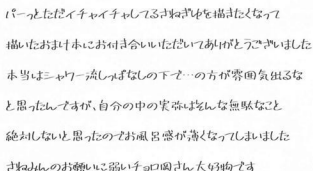 パーっとただイチャイチャしてるさねぎゆを描きたくなって
描いたおまけ本にお付き合いいただいてありがとうございました
本当はシャワー流しっぱなしの下で…の方が雰囲気出るな
と思ったんですが、自分の中の実弥はそんな無駄なこと
絶対しないと思ったのでお風呂感が薄くなってしまいました
さねみんのお願いに弱いチョロ岡さん大好物です